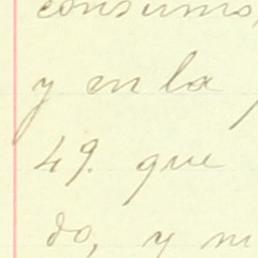 consumo,
y en la
49. que
do, y